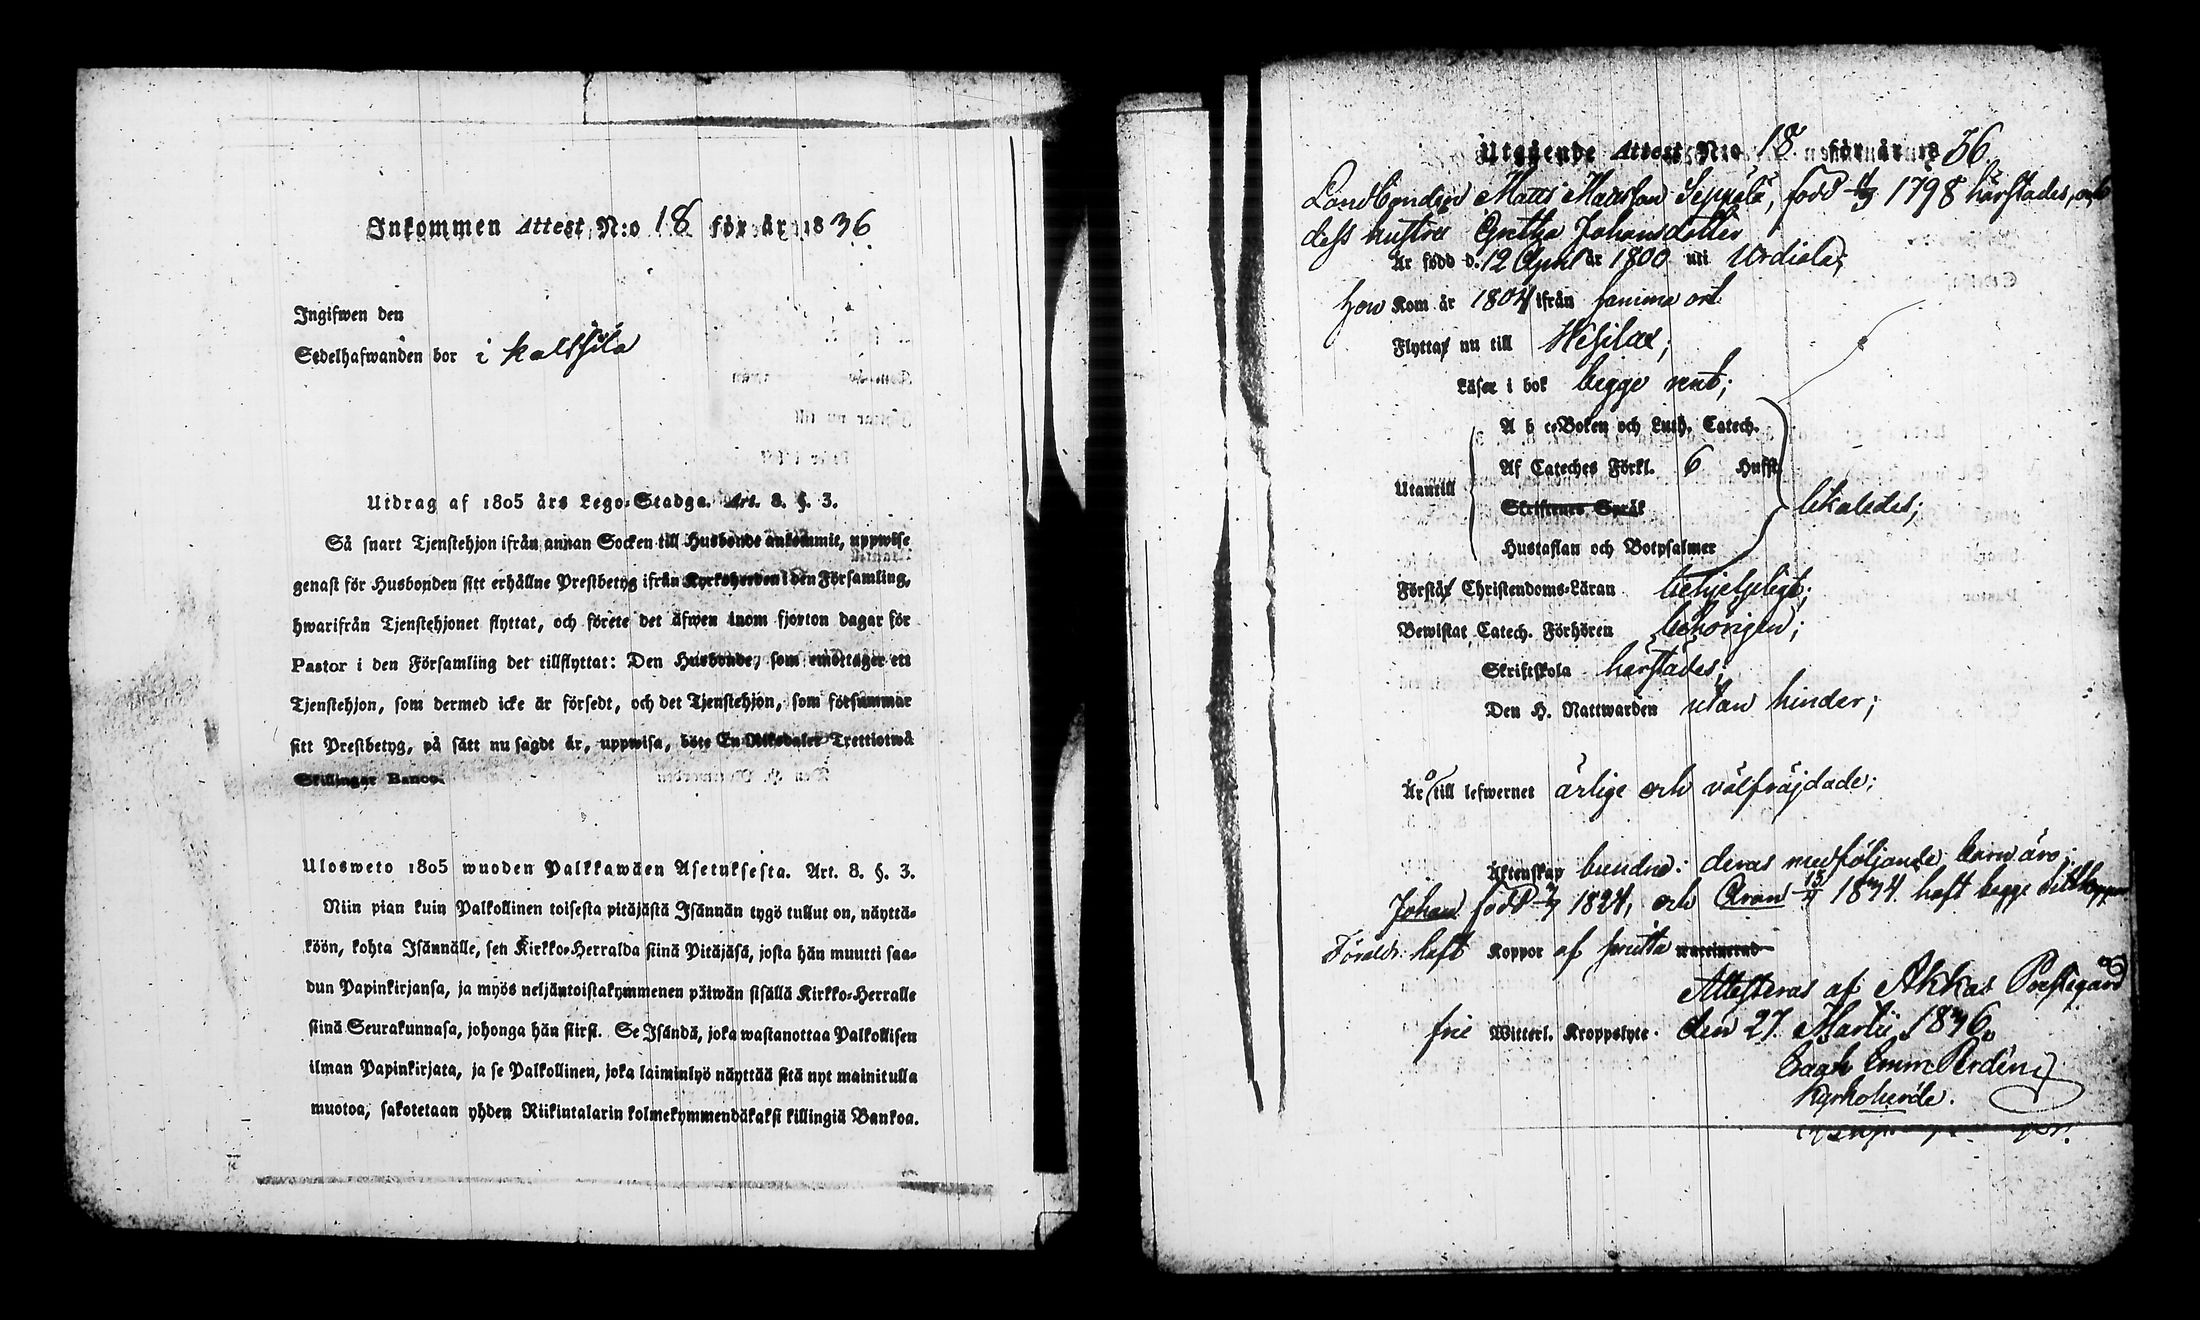 Inkommen Attest N:o 18 för år 1836
Ingifwen den
Sedelhafwanden bor i Kaltsila
Utdrag af 1805 års Lego-Stadga. Art. 8. §. 3.
Så snart Tjenstehjon ifrån annan Socken till Husbonde ankommit, uppwise
genast för Husbonden sitt erhållne Prestbetyg ifrån Kyrkoherden i den Församling,
hwarifrån Tjenstehjonet flyttat, och förete det äfwen inom fjorton dagar för
Pastor i den Församling det tillflyttat: Den Husbonde, som emottager ett
Tjenstehjon, som dermed icke är försedt, och det Tjenstehjon, som försummar
sitt Prestbetyg, på sätt nu sagdt är, uppwisa, böte En Riksdaler Trettiotwå
Skillingar Banco.
Ulosweto 1805 wuoden Palkkawäen Asetuksesta. Art. 8. §. 3.
Niin pian kuin Palkollinen toisesta pitäjästä Isännän tygö tullut on, näyttä-
köön, kohta Isännälle, sen Kirkko-Herralda siinä Pitäjäsä, josta hän muutti saa-
dun Papinkirjansa, ja myös neljäntoistakymmenen päiwän sisällä Kirkko-Herralle
siinä Seurakunnasa, johonga hän siirsi. Se Isändä, joka wastanottaa Palkollisen
ilman Papinkirjata, ja se Palkollinen, joka laiminlyö näyttää sitä nyt mainitulla
muotoa, sakotetaan yhden Riikintalarin kolmekymmendäkaksi killingiä Bankoa.
Utgående Attest N:o 18 för år 1836
Landbonden Matts Mattsson Seppälä, född 1798 härstädes, och
dess hustru Gretha Johansdotter
Är född d. 12 April år 1800 uti Urdiala;
hon Kom år 1804 ifrån samma ort
Flyttar nu till Wesilax;
Läser i bok begge rent;
A b c-Boken och Luth. Catech.
Af Cateches Förkl. 6 Hufst.
Utantill
Skriftenes Språk
likaledes;
Hustaflan och Botpsalmer
Förstår Christendoms-Läran behjelpligt;
Bewistat Catech. Förhören behörigen;
Skriftskola härstädes;
Den H. Nattwarden utan hinder;
Är till lefwernet ärlige och välfräjdade;
Äktenskap bundne: deras medföljande barn äro:
Johan född 1824, och Aron 1834. haft begge
Föräldr: haft Koppor af smitta vaccinerad
Attesteras af Akkas Prestegård
frie Witterl. Kroppslyte. den 27. Martii 1836.
Kyrkoherde.